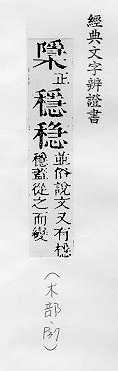 經典文字辨證書
正
穩 穏
並俗說文又有檼
穩蓋從之而變
(木部、)